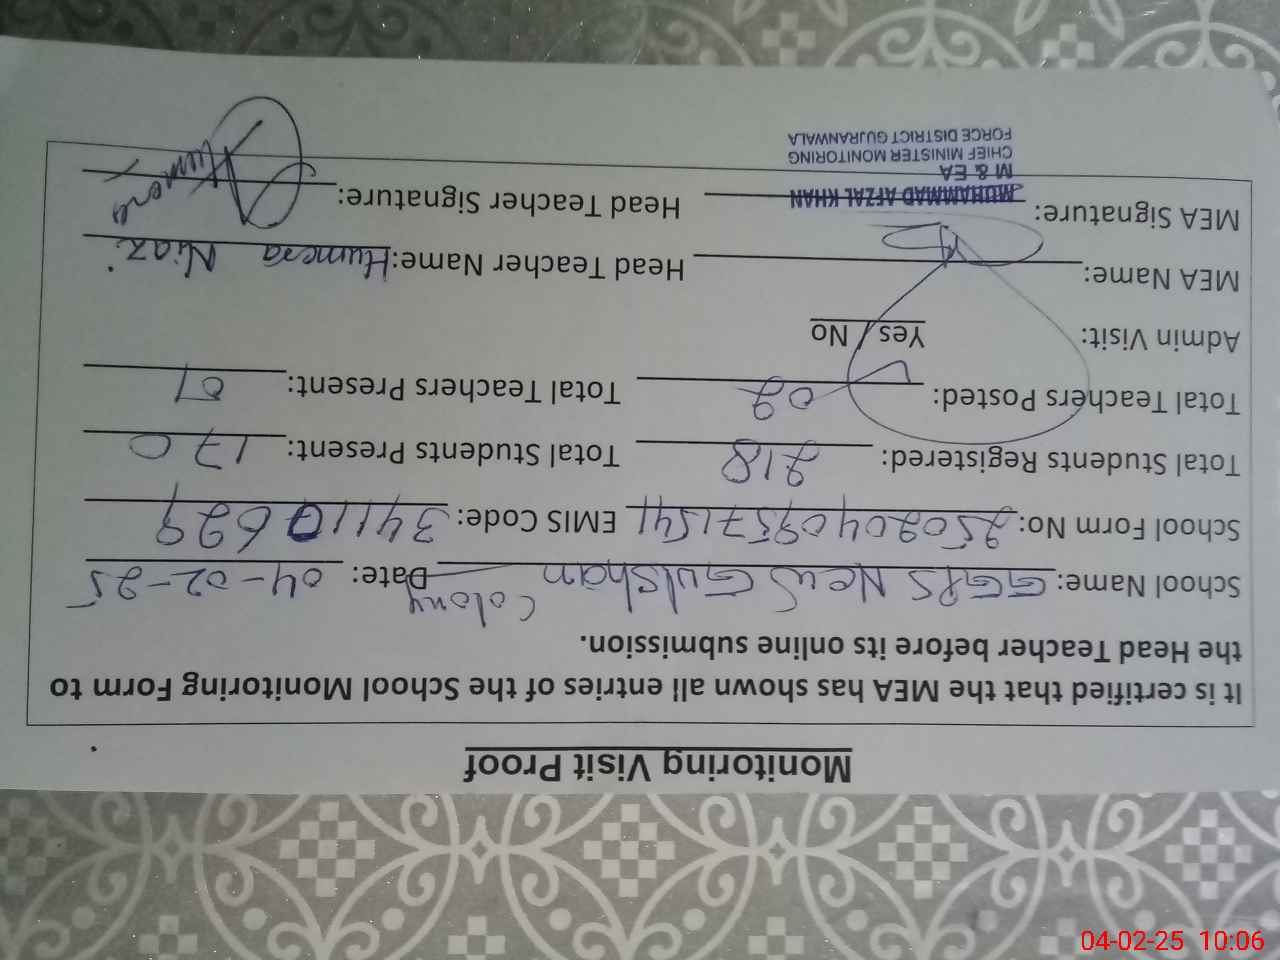 Monitoring Visit Proof
It is certified that the MEA has shown all entries of the School Monitoring Form to
the Head Teacher before its online submission.
School Name: GGPS New Gulshan Colony Date: 04-02-25
School Form No: 25020409571541 EMIS Code: 34110629
Total Students Registered: 218 Total Students Present: 170
Total Teachers Posted: 02 Total Teachers Present: 01
Admin Visit: Yes / No
MEA Name: Head Teacher Name: Humera Niazi
MEA Signature: Head Teacher Signature: Humera
MUHAMMAD AFZAL KHAN
M & EA
CHIEF MINISTER MONITORING
FORCE DISTRICT GUJRANWALA
04-02-25 10:06